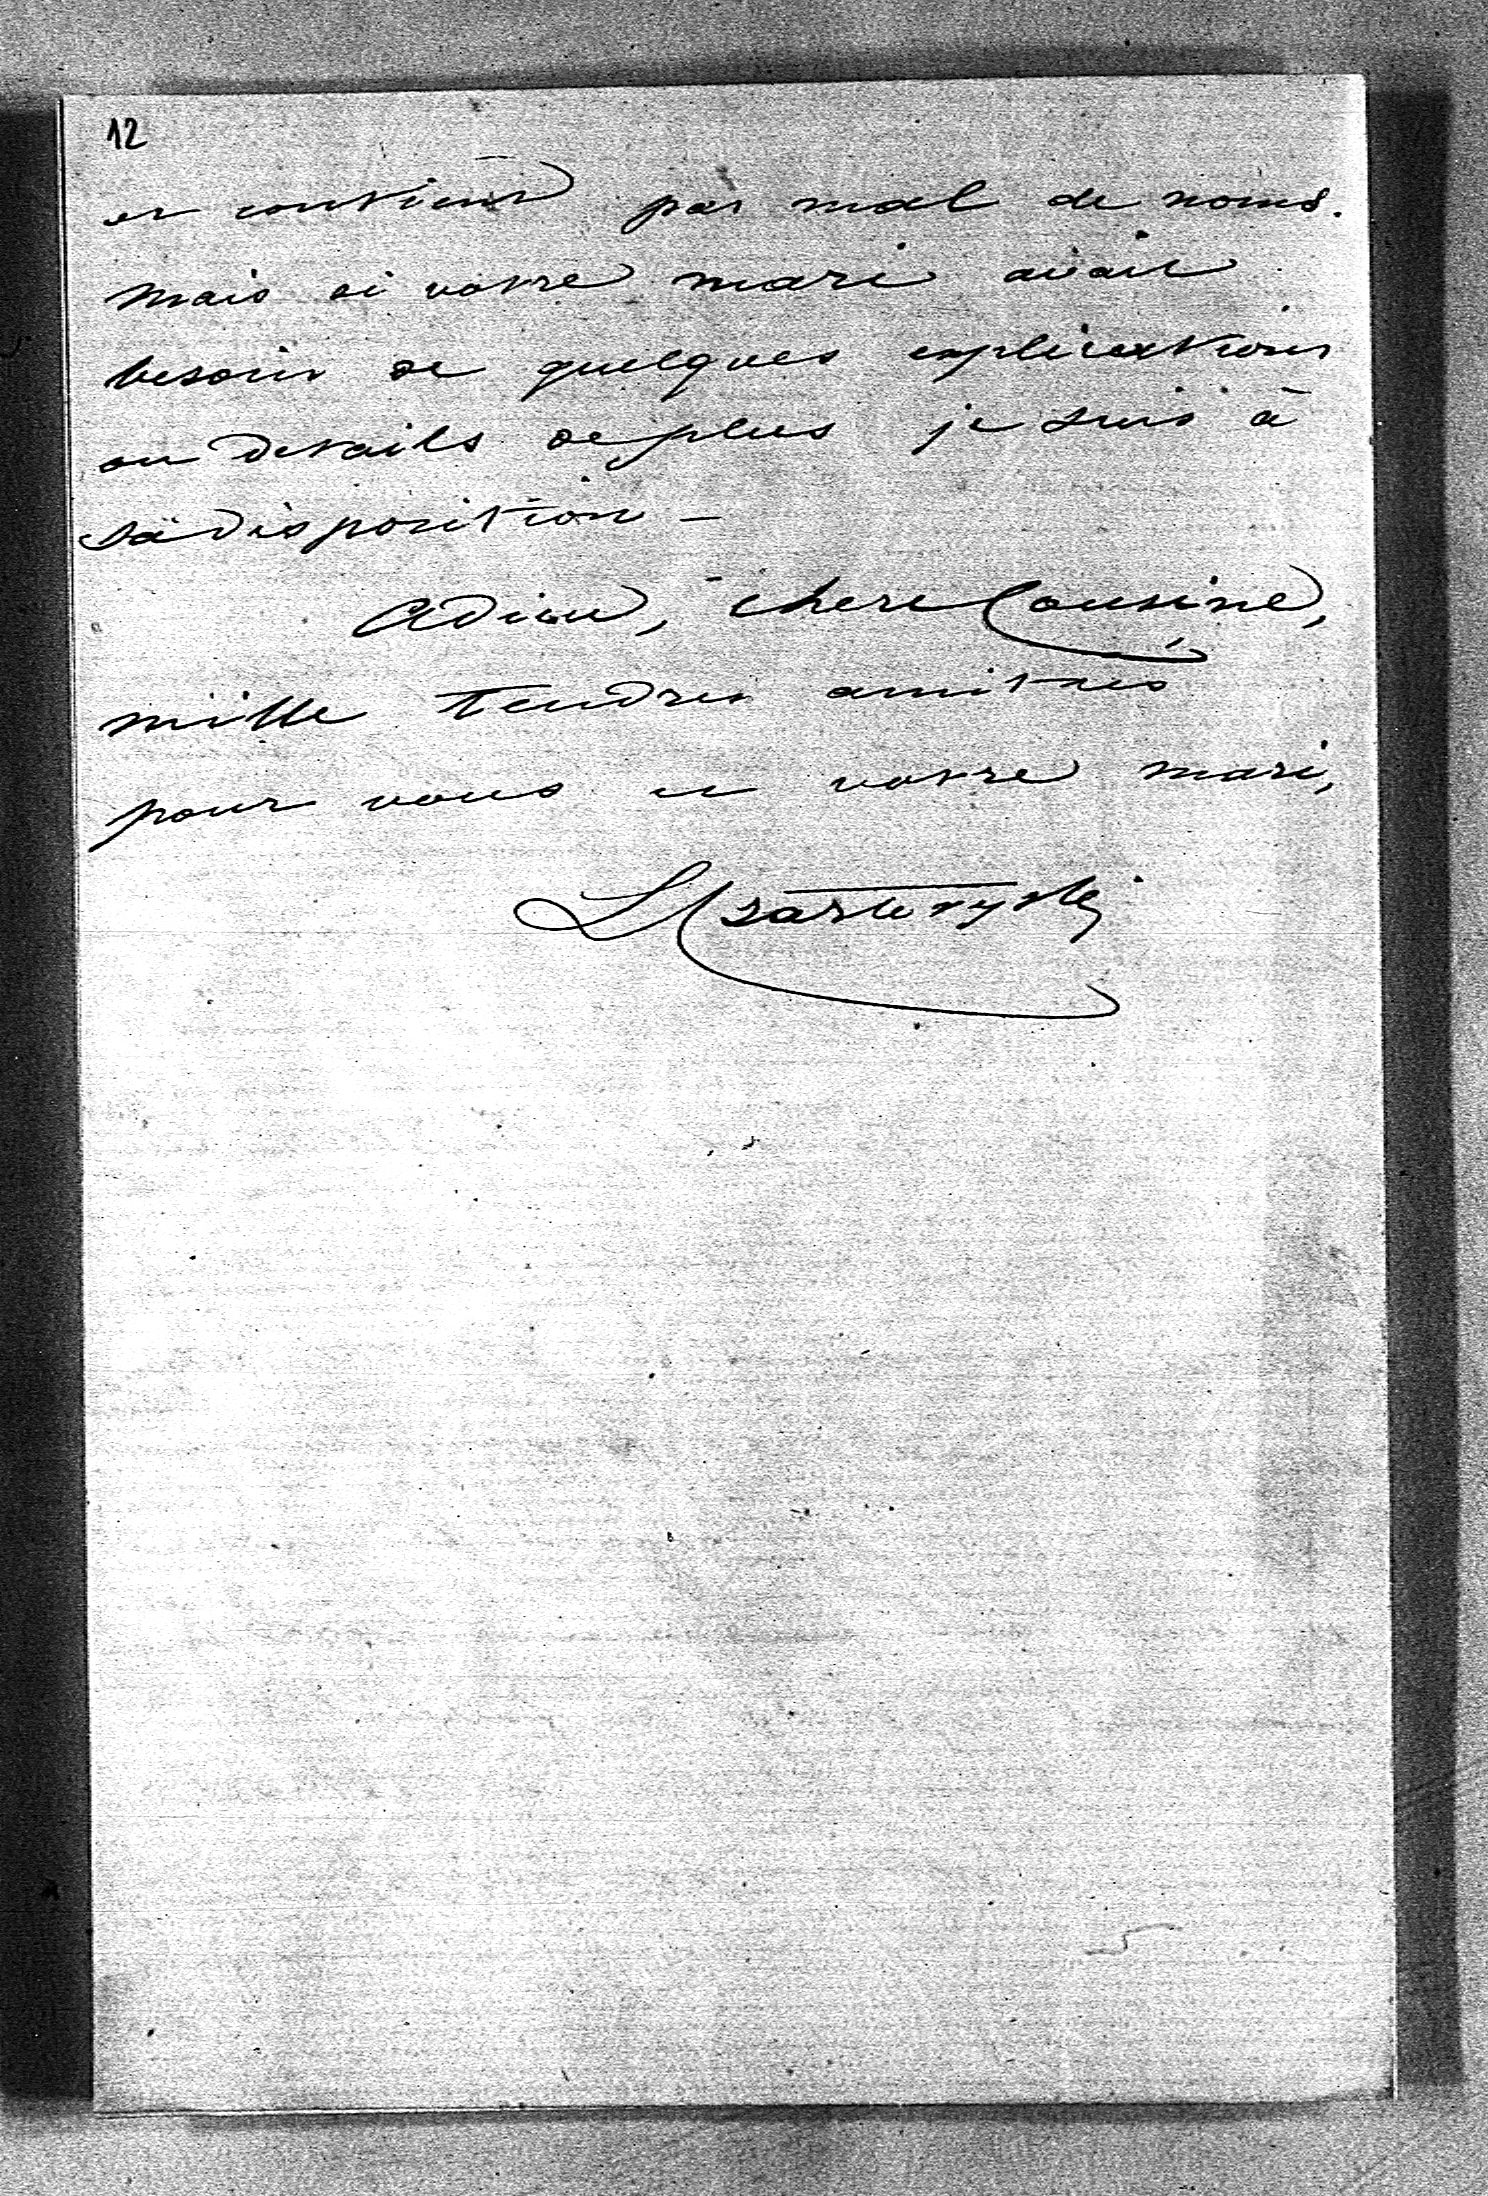 12
et contient pas mal de noms.
Mais si votre mari avait
besoin de quelques explications
ou details de plus je suis à
sa disposition –
Adieu, chere Cousine,
mille tendres amitiés
pour vous et votre mari,
LCzartoryski